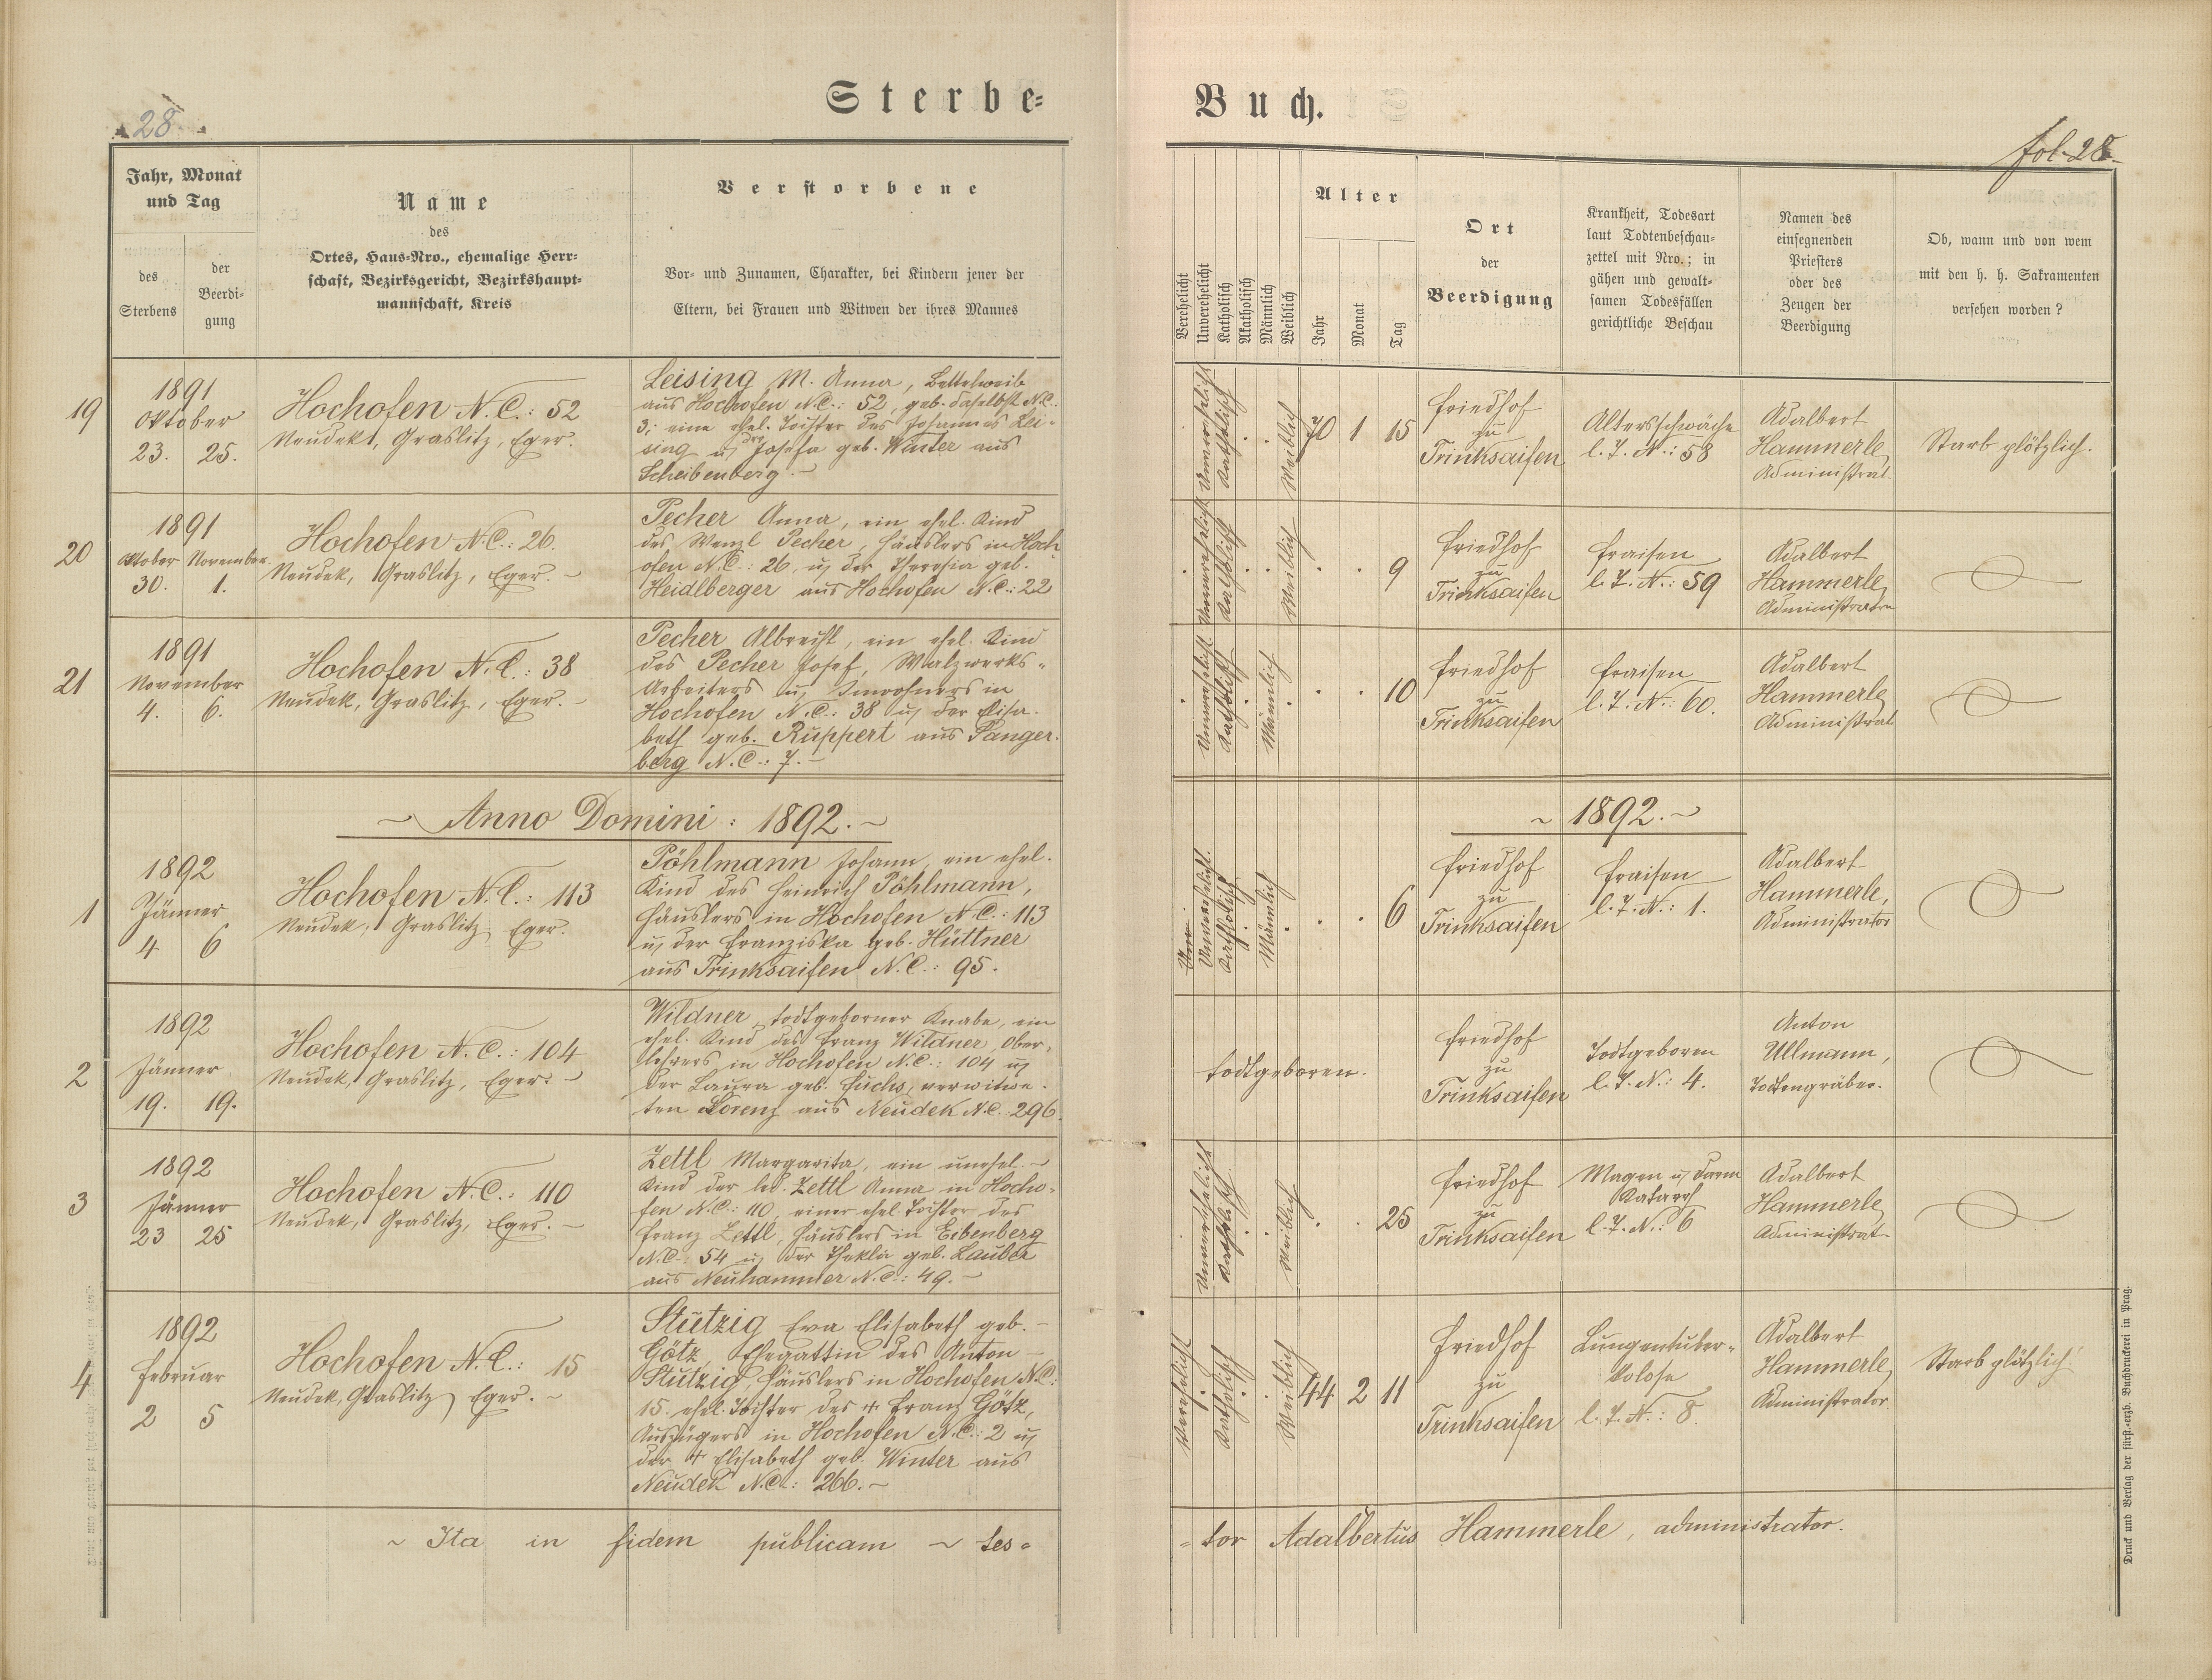 Sterbe=
Buch.
28
fol. 28.
Jahr, Monat
und Tag
des
Sterbens
der
Beerdi-
gung
Name
des
Ortes, Haus-Nro., ehemalige Herr-
schaft, Bezirksgericht, Bezirkshaupt-
mannschaft, Kreis
Verstorbene
Vor- und Zunamen, Charakter, bei Kindern jener der
Eltern, bei Frauen und Witwen der ihres Mannes
Verehelicht
Unverehelicht
Katholisch
Akatholisch
Männlich
Weiblich
Alter
Jahr
Monat
Tag
Ort
der
Beerdigung
Krankheit, Todesart
laut Todtenbeschau-
zettel mit Nro.; in
gähen und gewalt-
samen Todesfällen
gerichtliche Beschau
Namen des
einsegnenden
Priesters
oder des
Zeugen der
Beerdigung
Ob, wann und von wem
mit den h. h. Sakramenten
versehen worden?
19
1891
Oktober
23. 25.
Hochofen N.C.: 52
Neudek, Graslitz, Eger.
Leising M. Anna, Bettelweib
aus Hochofen N.C.: 52, geb. daselbst N.C.:
3; eine ehel. Tochter des Johannes Lei-
sing u. der Josefa geb. Winter aus
Scheibenberg.-
Unverehelicht
Katholisch
Weiblich
70 1 15
Friedhof
zu
Trinksaifen
Altersschwäche
l. T. N.: 58
Adalbert
Hammerle,
Administrat.
Starb plötzlich.
20
1891
Oktober November
30. 1.
Hochofen N.C.: 26.
Neudek, Graslitz, Eger.-
Pecher Anna, ein ehel. Kind
des Wenzl Pecher, Häuslers in Hoch
ofen N.C.: 26, u. der Theresia geb.
Heidlberger aus Hochofen N.C.: 22
Unverehelicht
Katholisch
Weiblich
9
Friedhof
zu
Trinksaifen
Fraisen
l. T. N.: 59
Adalbert
Hammerle,
Administrator
21
1891
November
4. 6.
Hochofen N.C.: 38
Neudek, Graslitz, Eger.-
Pecher Albrecht, ein ehel. Kind
des Pecher Josef, Walzwerks-
Arbeiters u. Inwohners in
Hochofen N.C.: 38 u. der Elisa-
beth geb. Ruppert aus Panger-
berg N.C.: 7.-
Unverehelicht.
Katholisch
Männlich
10
Friedhof
zu
Trinksaifen
Fraisen
l. T. N.: 60.
Adalbert
Hammerle,
Administrat
~ Anno Domini: 1892. ~
~ 1892. ~
1
1892
Jänner
4 6
Hochofen N.C.: 113
Neudek, Graslitz, Eger.
Pöhlmann Johann, ein ehel.
Kind des Heinrich Pöhlmann,
Häuslers in Hochofen N.C.: 113
u. der Franziska geb. Hüttner
aus Trinksaifen N.C.: 95.
Unverehelicht.
Katholisch
Männlich
6
Friedhof
zu
Trinksaifen
Fraisen
l. T. N.: 1.
Adalbert
Hammerle,
Administrator
2
1892
Jänner
19. 19.
Hochofen N.C.: 104
Neudek, Graslitz, Eger.-
Wildner, todtgeborner Knabe, ein
ehel. Kind des Franz Wildner, Ober-
lehrers in Hochofen N.C.: 104 u.
der Laura geb. Fuchs, verwitwe-
ten Lorenz aus Neudek N.C. 296.
todtgeboren.
Friedhof
zu
Trinksaifen
Todtgeboren
l. T. N.: 4.
Anton
Ullmann,
Todtengräber.
3
1892
Jänner
23 25
Hochofen N.C.: 110
Neudek, Graslitz, Eger.-
Zettl Margarita, ein unehel.-
Kind der led. Zettl Anna in Hocho-
fen N.C.: 110, einer ehel. Tochter des
Franz Zettl, Häuslers in Eibenberg
N.C.: 54 u. der Thekla geb. Lauber
aus Neuhammer N.C.: 49.-
Unverehelicht
Katholisch
Weiblich
25
Friedhof
zu
Trinksaifen
Magen u. Darm
Katarrh
l. T. N.: 6
Adalbert
Hammerle,
Administrat-
4
1892
Februar
2 5
Hochofen N.C.: 15
Neudek, Graslitz, Eger.-
Stützig Eva Elisabeth geb.-
Götz, Ehegattin des Anton-
Stützig, Häuslers in Hochofen N.C.:
15. ehel. Tochter des + Franz Götz,
Auszügers in Hochofen N.C.: 2 u.
der + Elisabeth geb. Winter aus
Neudek N.C.: 266.-
Verehelicht
Katholisch
Weiblich
44 2 11
Friedhof
zu
Trinksaifen
Lungentuber-
kolose
l. T. N.: 8.
Adalbert
Hammerle,
Administrator
Starb plötzlich
~ Ita in fidem publicam ~ tes=
=tor Adalbertus Hammerle, administrator.
Druck und Verlag der fürst.-erzb. Buchdruckerei in Prag.